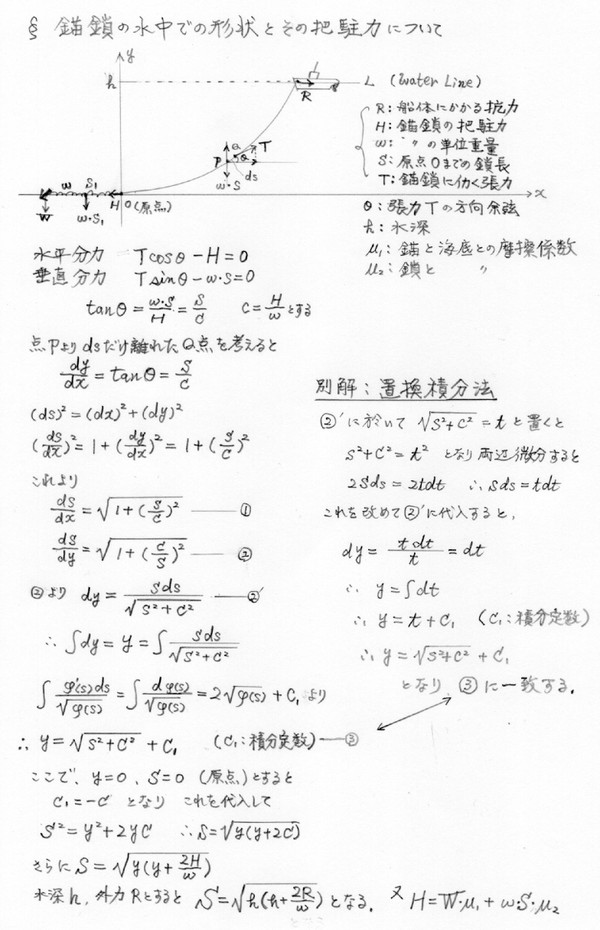 § 錨鎖の水中での形状とその把駐力について
y
h
L (Water Line)
R
R: 船体にかかる抗力
H: 錨鎖の把駐力
w: 〃 の単位重量
S: 原点Oまでの鎖長
T: 錨鎖に働く張力
θ: 張力Tの方向余弦
h: 水深
μ₁: 錨と海底との摩擦係数
μ₂: 鎖と 〃
Q T
P θ
ds
w·S
w S₁
H O(原点) x
W w·S₁
水平分力 Tcosθ−H=0
垂直分力 Tsinθ−w·s=0
tanθ=w·S/H=S/C C=H/wとする
点Pよりdsだけ離れたQ点を考えると
dy/dx=tanθ=S/C
(ds)²=(dx)²+(dy)²
(ds/dx)²=1+(dy/dx)²=1+(S/C)²
これより
ds/dx=√(1+(S/C)²) ――①
ds/dy=√(1+(C/S)²) ――②
②より dy=sds/√(S²+C²) ――②′
∴ ∫dy=y=∫sds/√(S²+C²)
∫φ′(s)ds/√φ(s)=∫dφ(s)/√φ(s)=2√φ(s)+C₁ より
∴ y=√(S²+C²)+C₁ (C₁:積分定数)―③
ここで、y=0、S=0 (原点)とすると
C₁=−C となり これを代入して
S²=y²+2yC ∴S=√(y(y+2C))
さらに S=√(y(y+2H/w))
水深h, 外力Rとすると S=√(h(h+2R/w)) となる. 又 H=W·μ₁+w·S·μ₂
別解:置換積分法
②′に於いて √(S²+C²)=t と置くと
S²+C²=t² となり両辺微分すると
2Sds=2tdt ∴sds=tdt
これを改めて②′に代入すると,
dy=tdt/t=dt
∴ y=∫dt
∴ y=t+C₁ (C₁:積分定数)
∴ y=√(S²+C²)+C₁
となり ③に一致する.